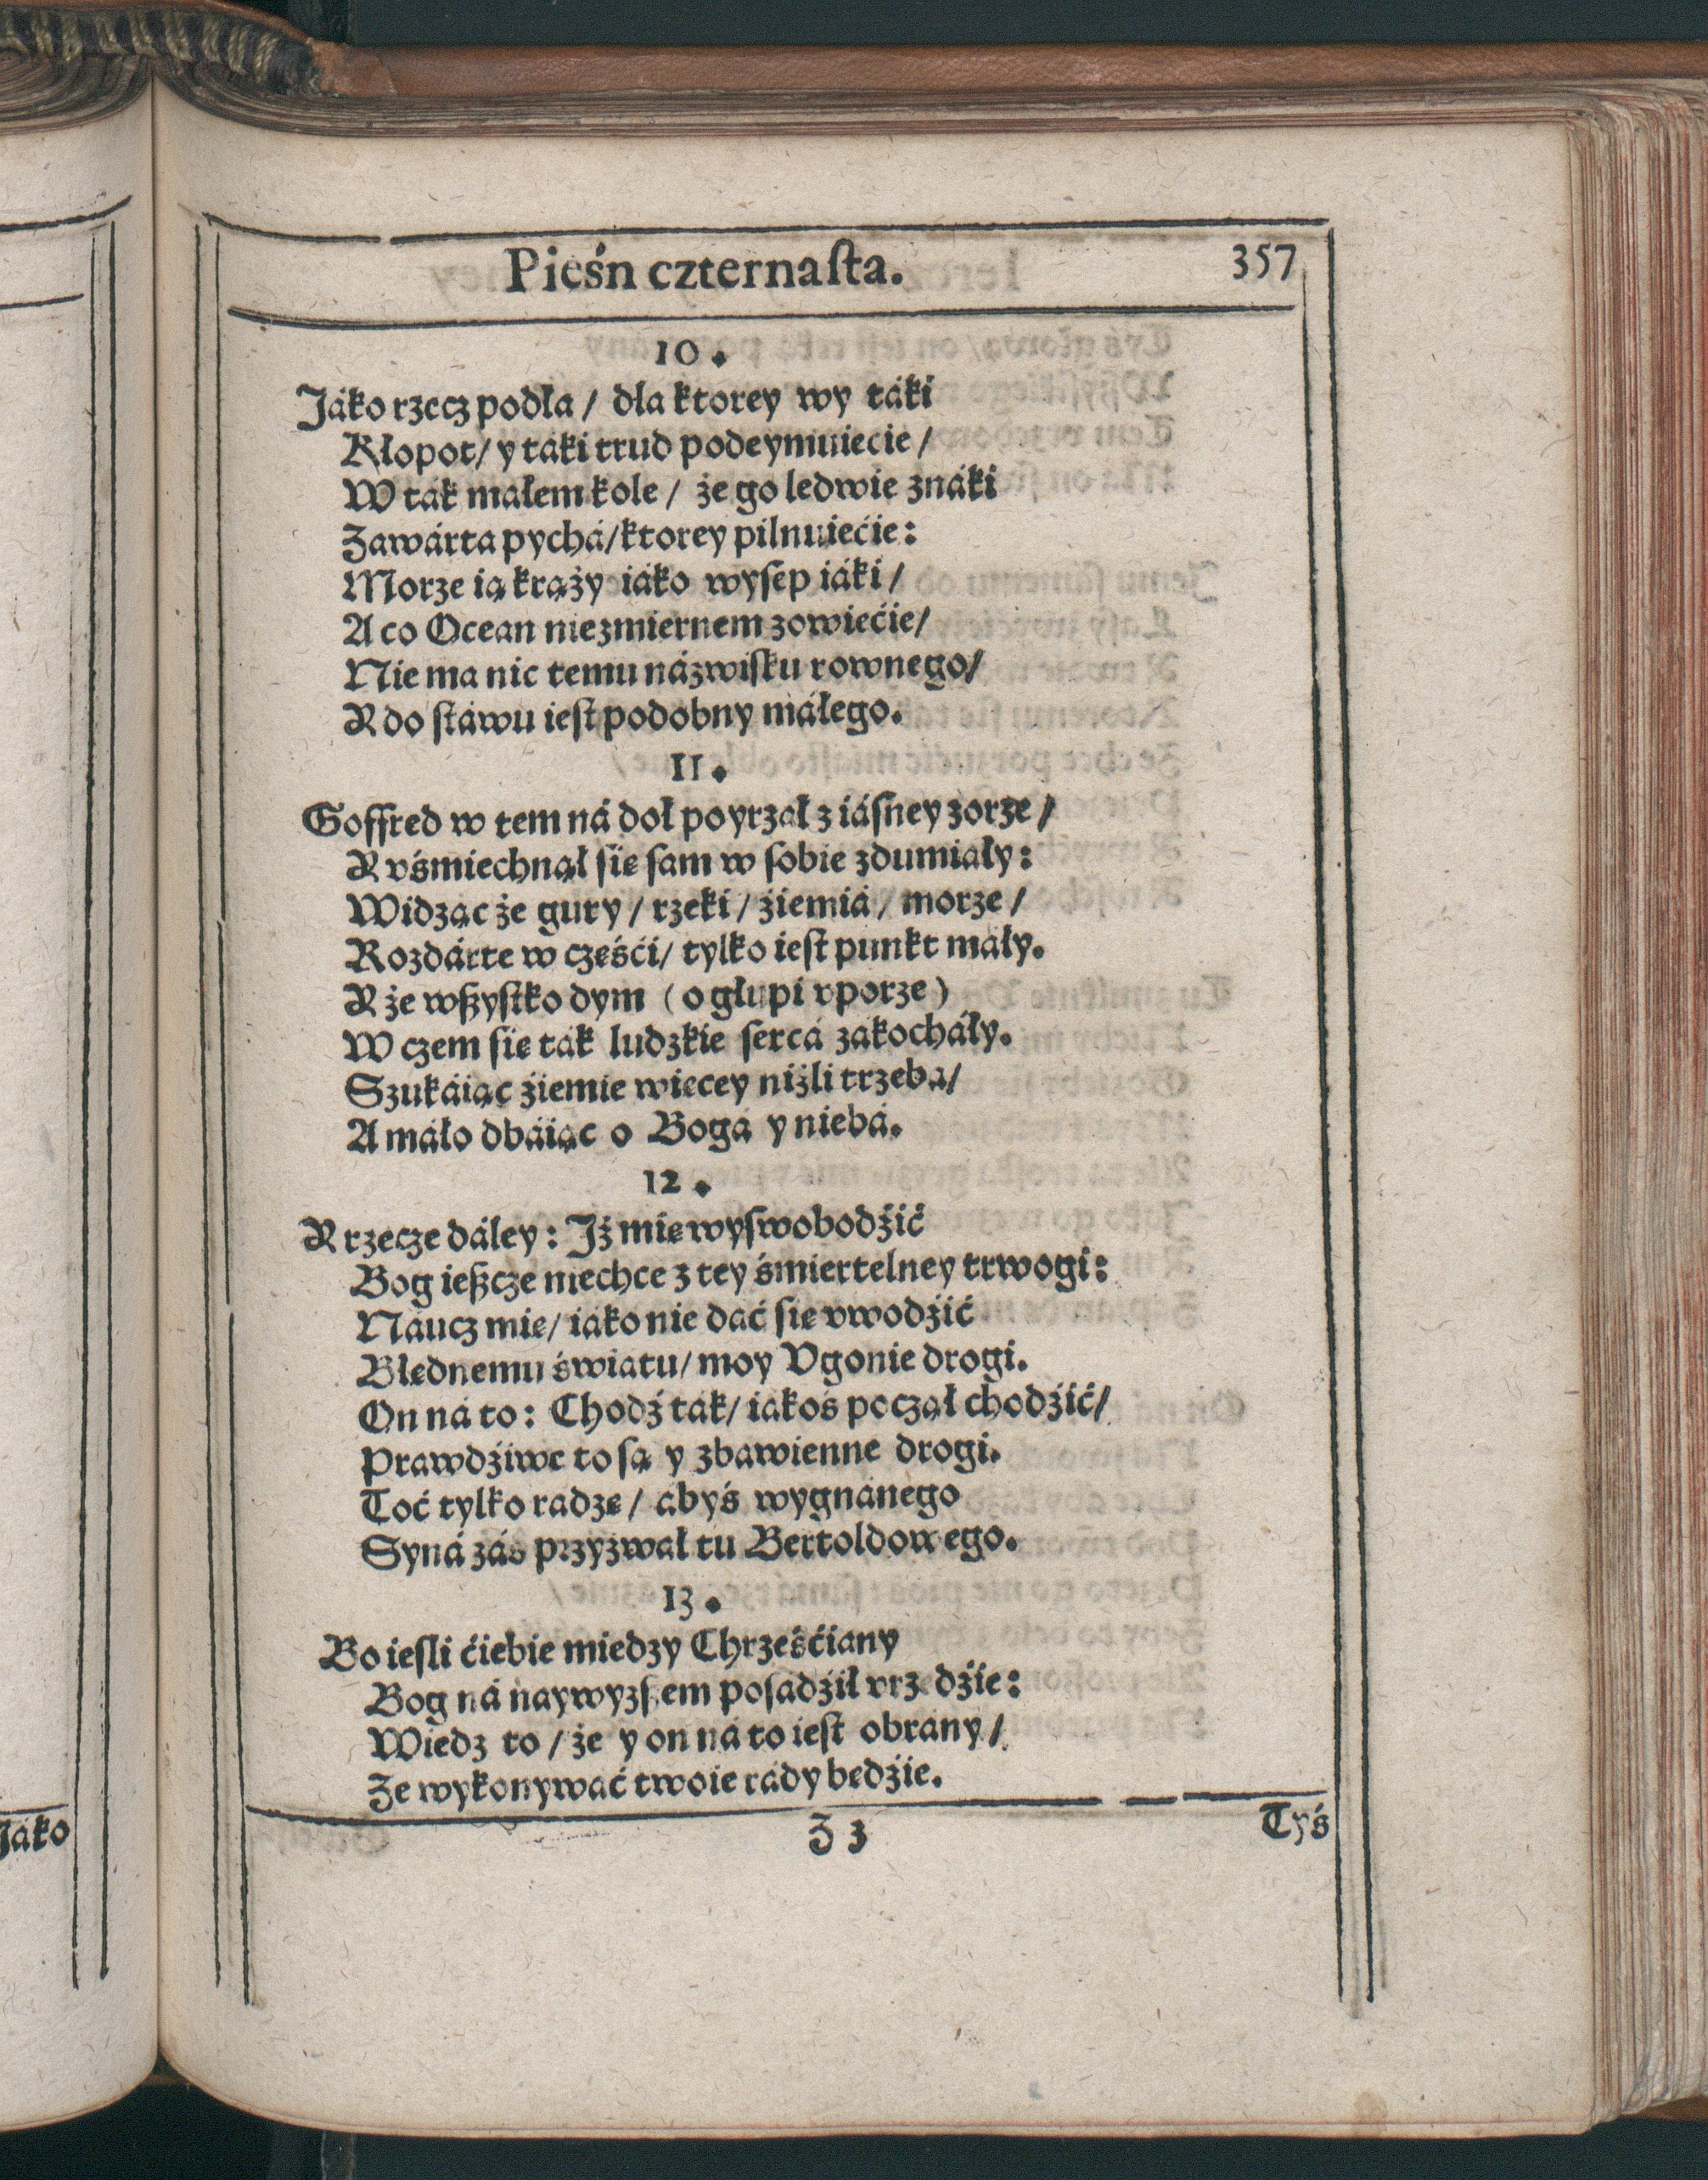 Pieśn czternaſta. 357
10.
Jáko rzecz podła / dla ktorey wy táki
Kłopot / y táki trud podeymuiecie /
W ták małem kole / że go ledwie znáki
Záwárta pychá / ktorey pilnuiećie:
Morze ią krąży iáko wyſep iáki /
A co Ocean niezmiernem zowiećie /
Nie ma nic temu názwiſku rownego /
A do ſtáwu ieſt podobny máłego.
11.
Goffred w tem ná doł poyrzał z iáſney zorze /
A vśmiechnął ſię ſam w ſobie zdumiáły:
Widząc że gury / rzeki / źiemiá / morze /
Rozdárte w częśći / tylko ieſt punkt mały.
A że wßyſtko dym (o głupi vporze)
W czem ſię ták ludzkie ſercá zakocháły.
Szukáiąc źiemie więcey niżli trzebá /
A máło dbáiąc o Bogá y niebá.
12.
A rzecze dáley: Jż mię wyſwobodźić
Bog ießcze niechce z tey śmiertelney trwogi:
Náucz mię / iáko nie dáć ſię vwodźić
Błędnemu świátu / moy Vgonie drogi.
On ná to: Chodź ták / iákoś począł chodźić /
Prawdźiwe to ſą y zbáwienne drogi.
Toć tylko rádzę / ábyś wygnánego
Syná záś przyzwał tu Bertoldowego.
13.
Bo ieſli ćiebie między Chrześćiány
Bog ná naywyzſzem poſádźił vrzędźie:
Wiedz to / że y on ná to ieſt obrány /
Że wykonywáć twoie rády będźie.
Z 3 Tyś
Jáko